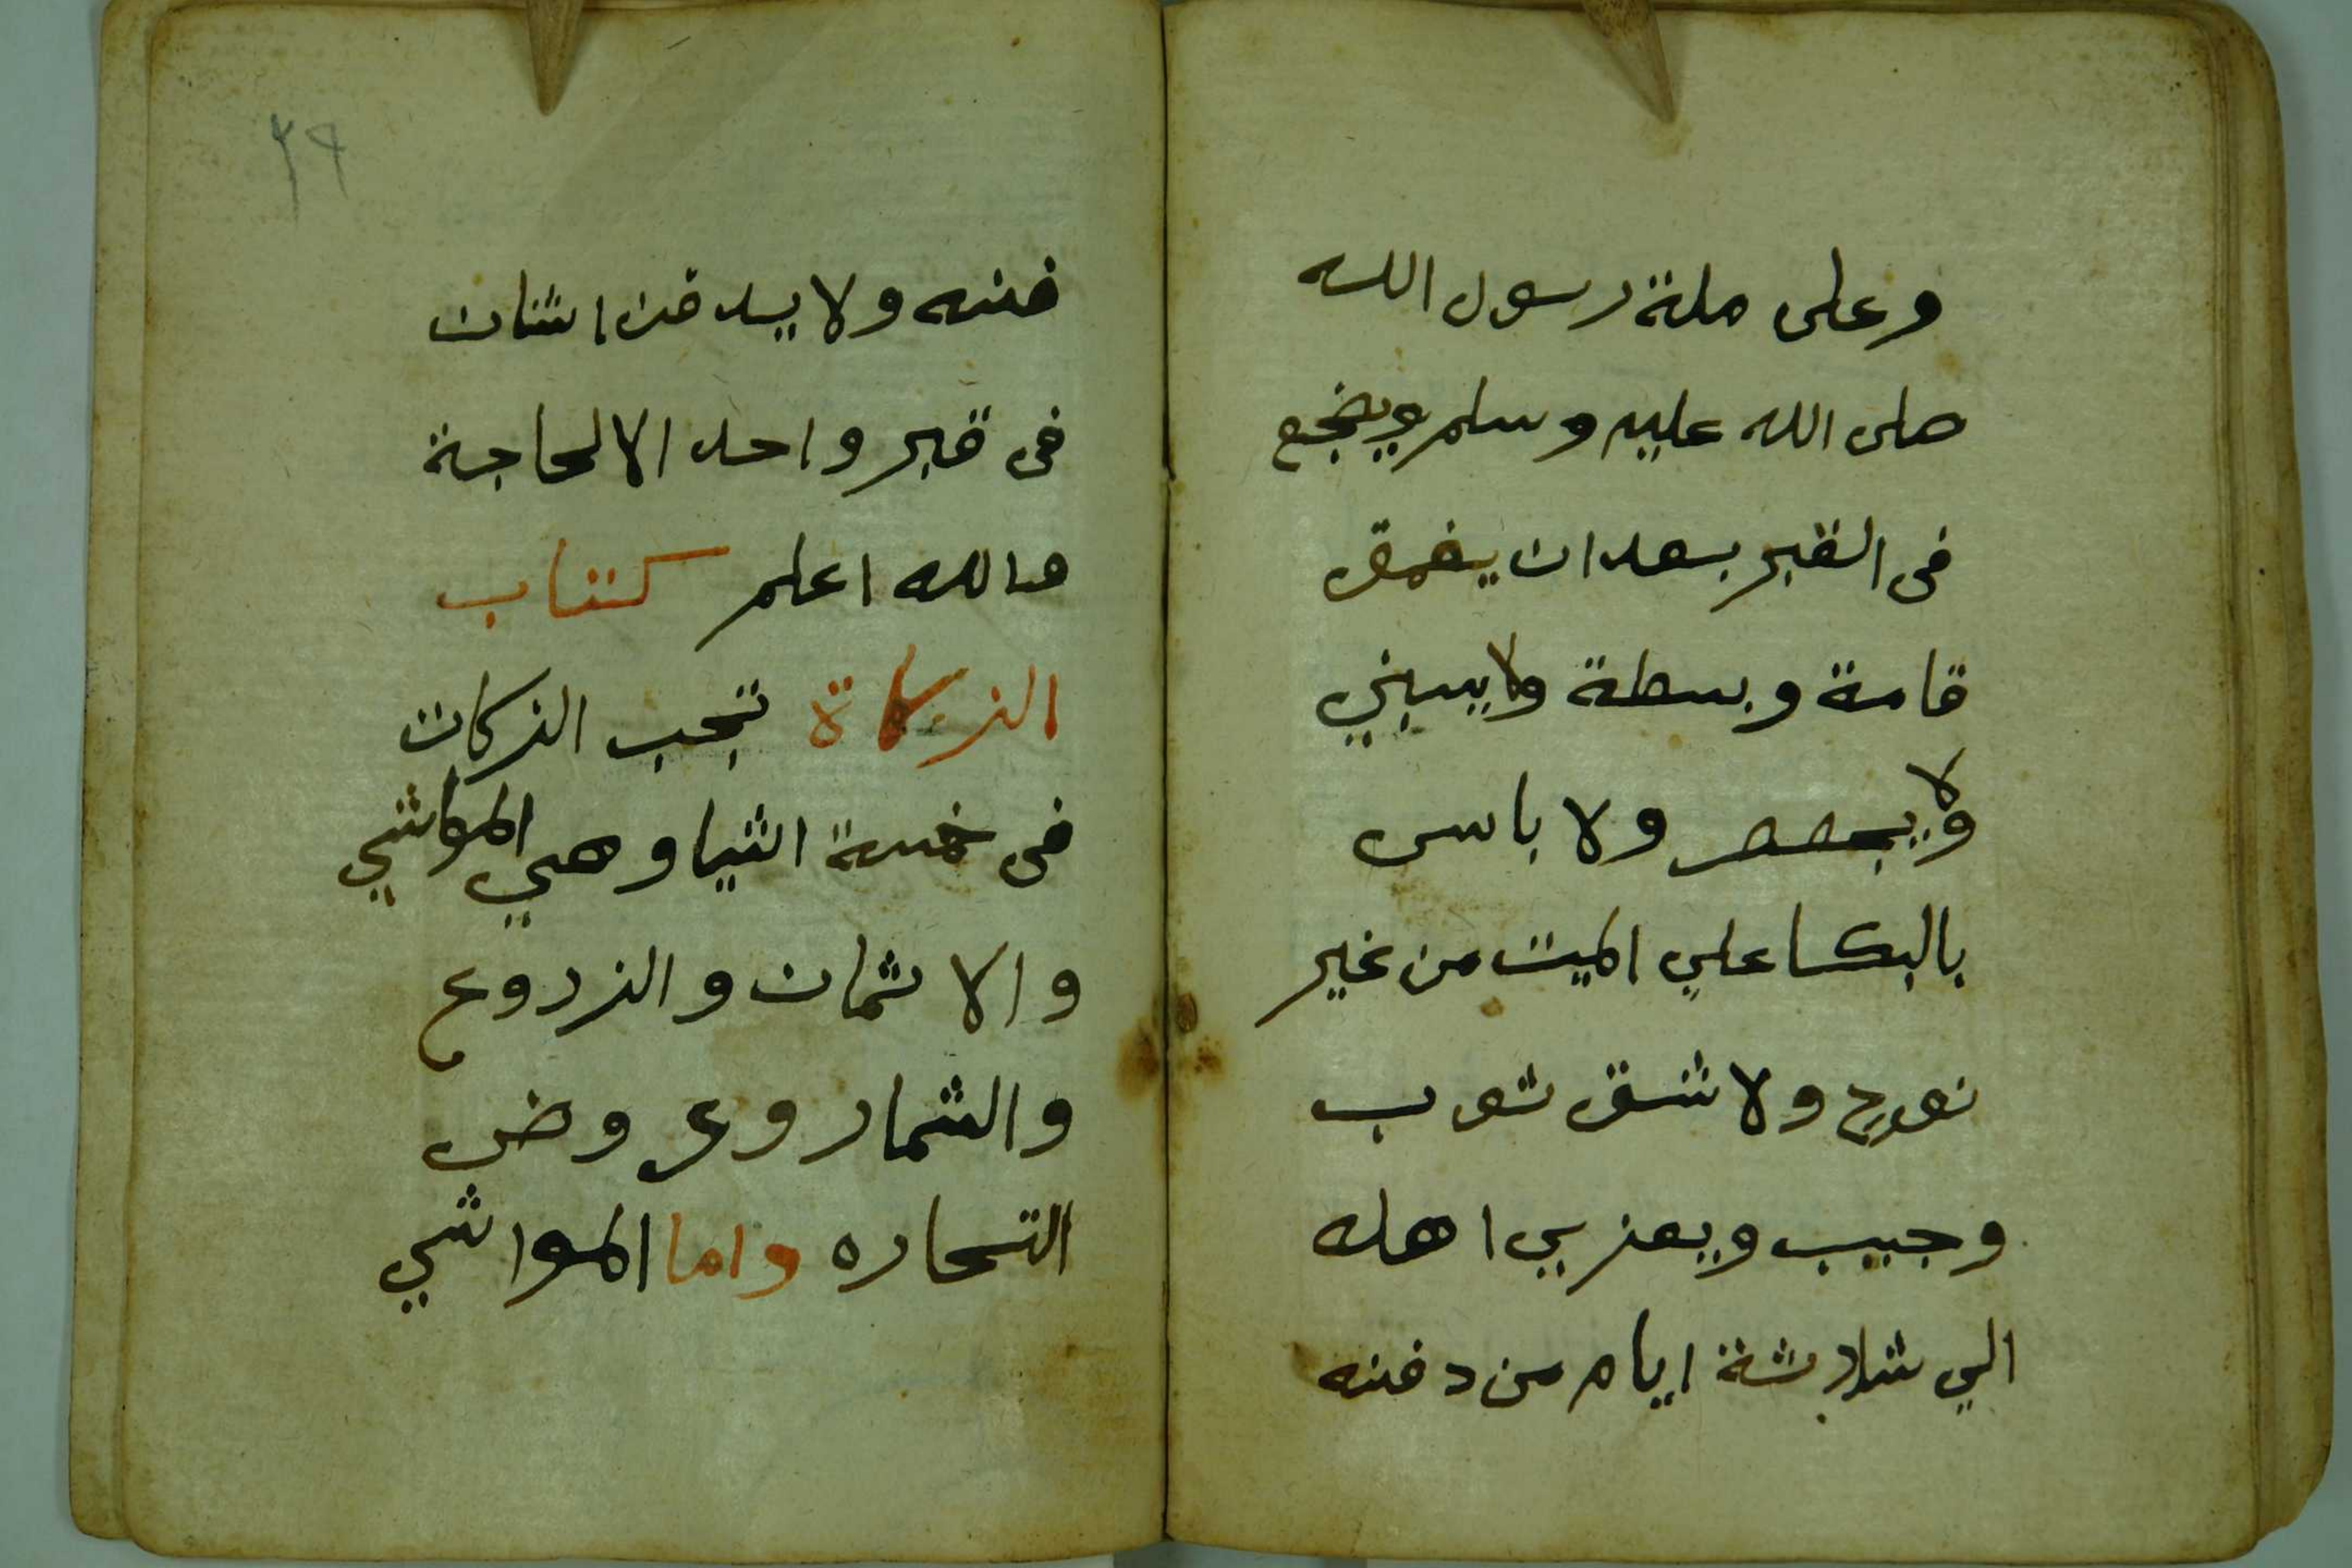 وعلى ملة رسول الله
صلى الله عليه وسلم ويضجع
فى القبر بعد ان يعمق
قامة وبسطة ولا يبني
ولا يجصص ولا باس
بالبكا علي الميت من غير
نوح ولا شق ثوب
وجيب ويعزي اهله
الي ثلاثة ايام من دفنه
٣٩
فنه ولا يدفن اثنان
فى قبر واحد الا لحاجة
والله اعلم كتاب
الزكاة تجب الزكات
فى خمسة اشيا وهي المواشي
والاثمان والزروع
والثمار وعروض
التجاره واما المواشي